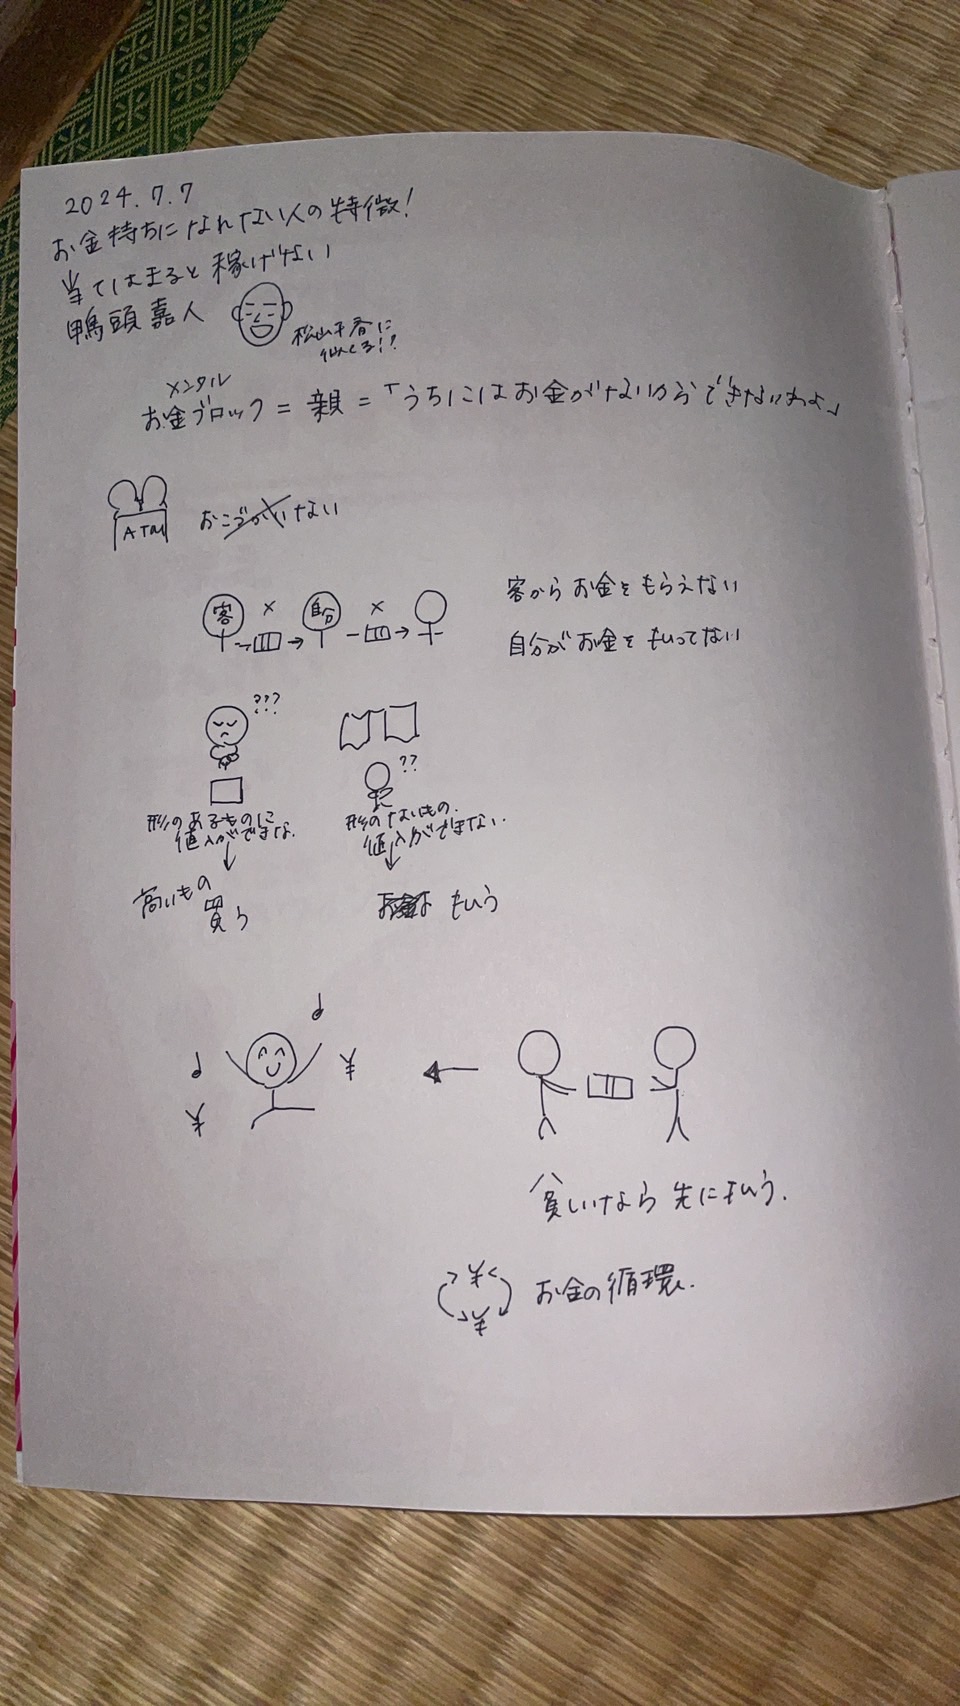 2024.7.7
お金持ちになれない人の特徴!
当てはまると稼げない
鴨頭嘉人
松山千春に
似てる!?
メンタル
お金ブロック = 親 =「うちにはお金がないからできないわよ」
ATM
おこづかいない
客 × 自分 ×
客からお金をもらえない
自分がお金をもってない
???
??
形のあるものに
値入ができな.
形のないもの.
値入ができない.
高いもの
買う
もらう
♪
♪ ¥
¥
貧しいなら先に払う.
¥
¥
お金の循環.